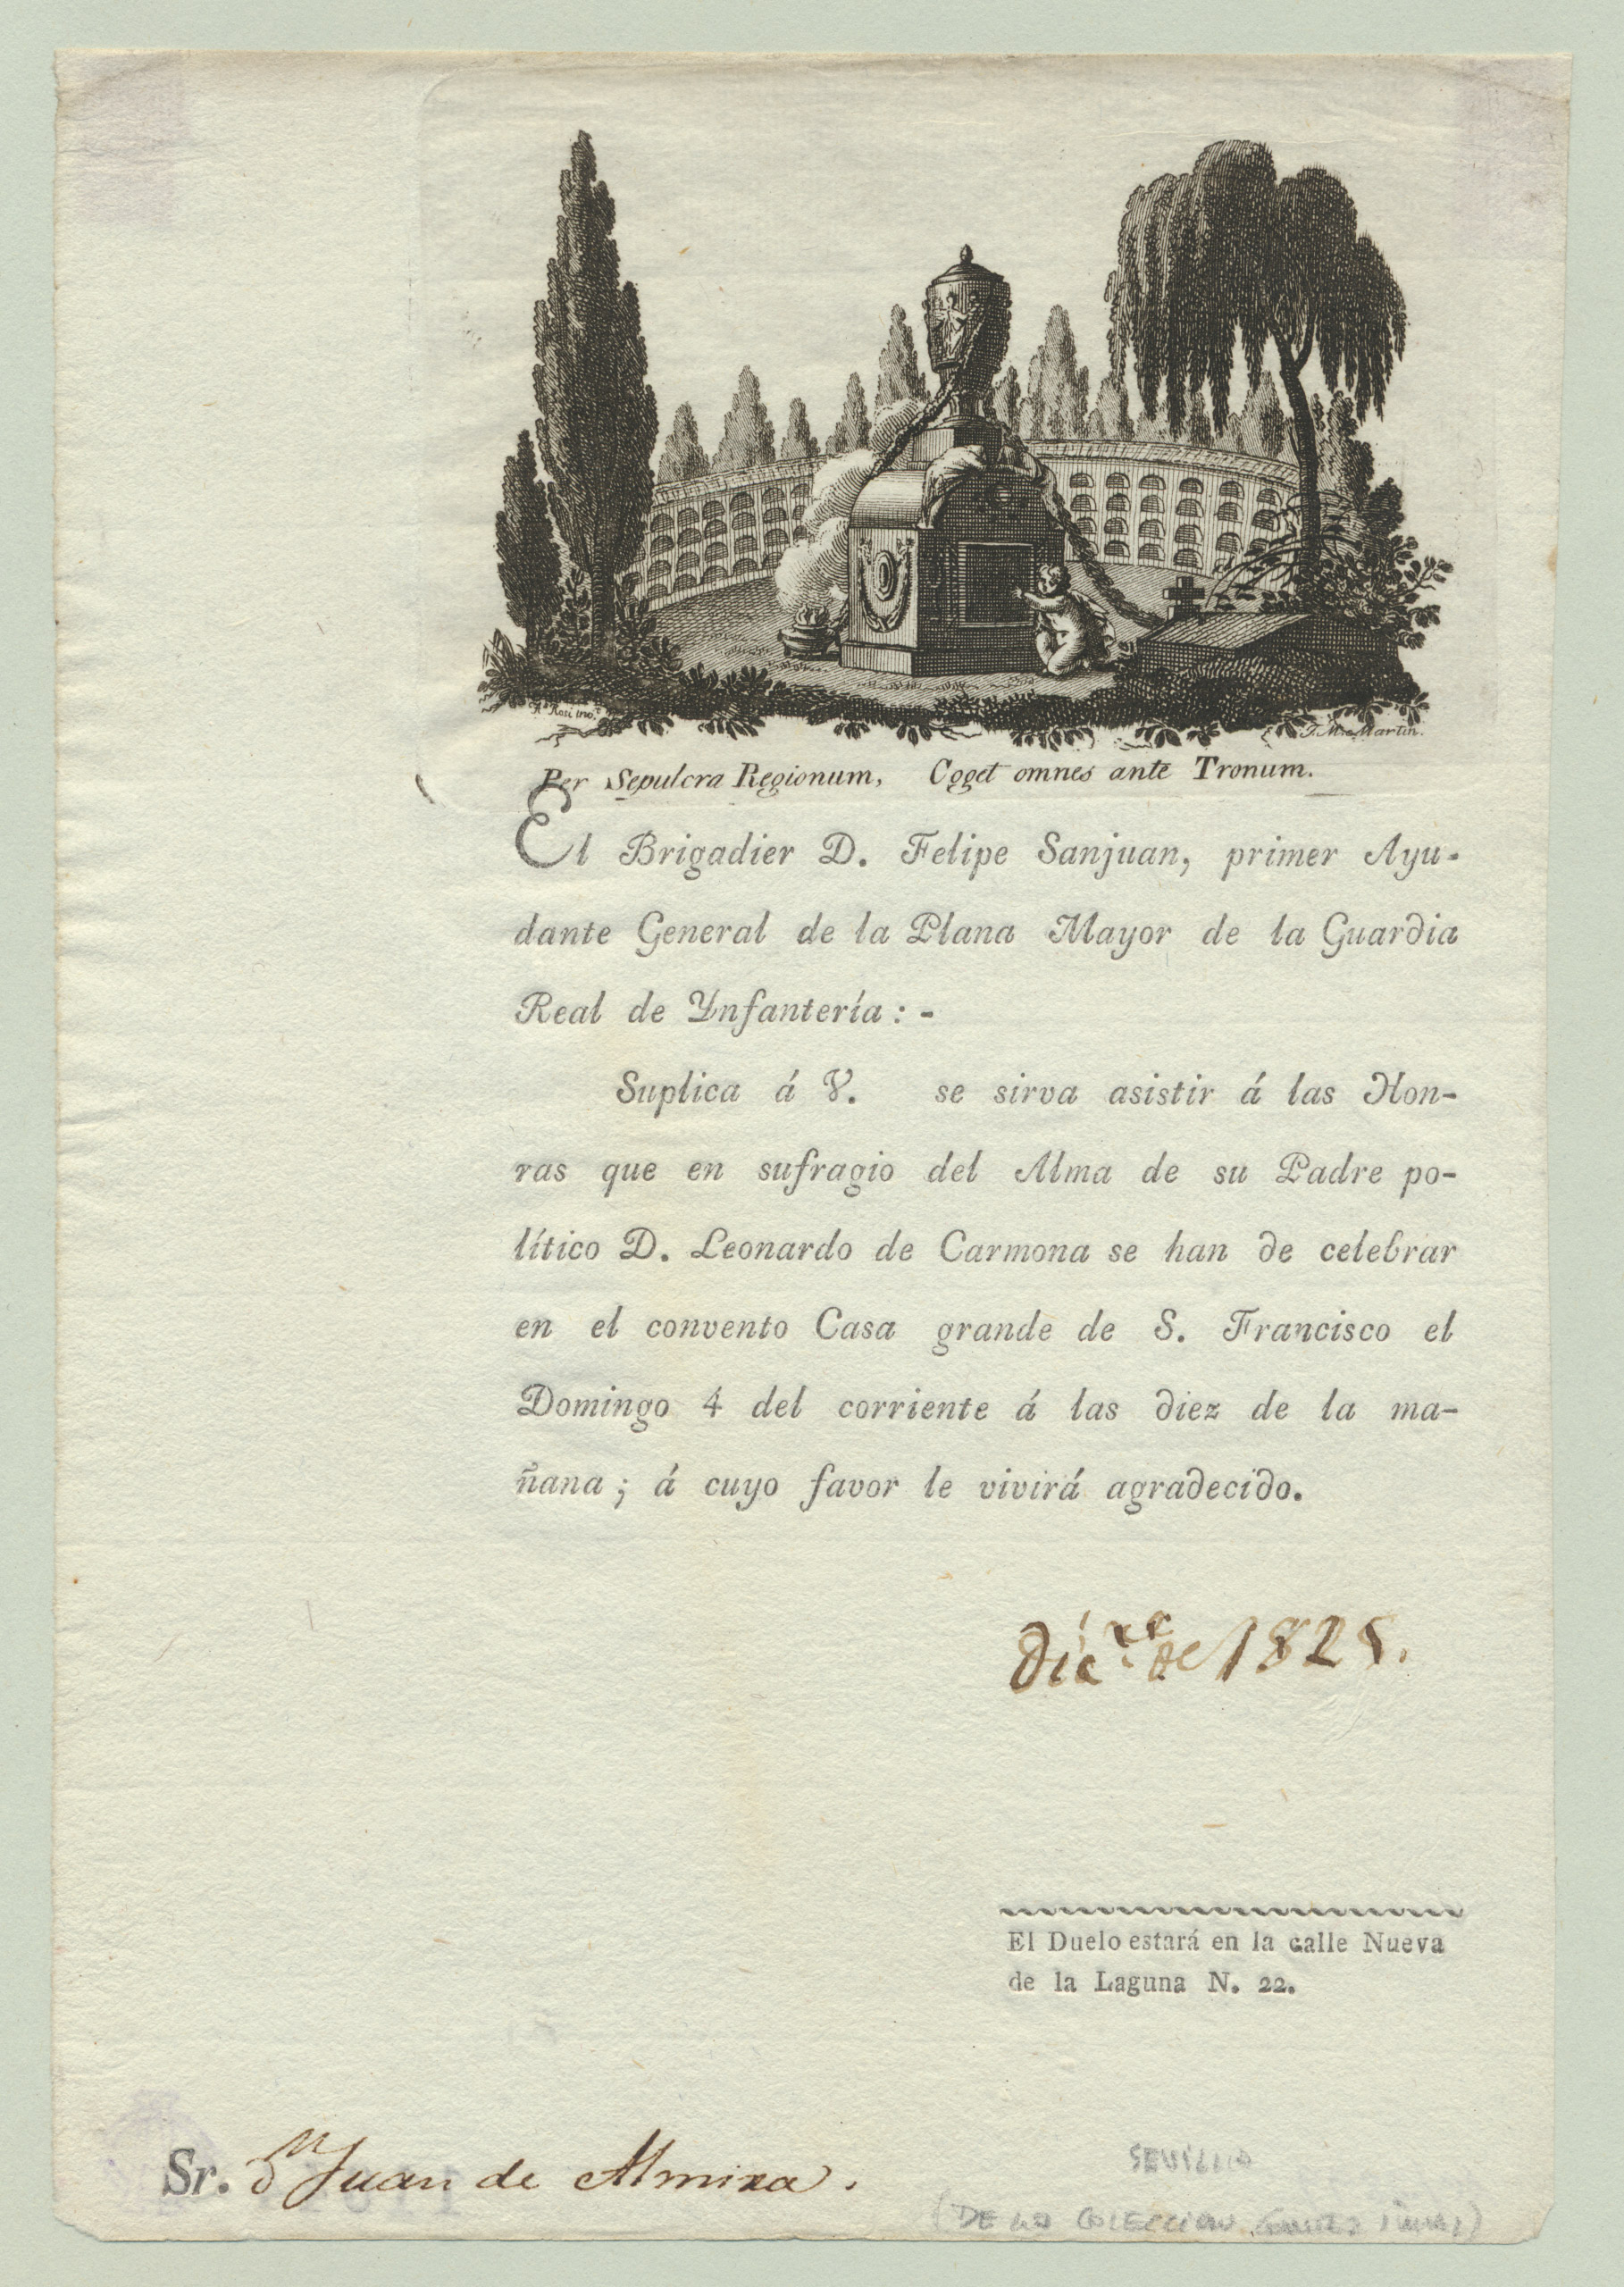 Rosi inv.
J. M. Martin.
Per Sepulcra Regionum, Coget omnes ante Tronum.
El Brigadier D. Felipe Sanjuan, primer Ayu-
dante General de la Plana Mayor de la Guardia
Real de Ynfantería : -
Suplica á V. se sirva asistir á las Hon-
ras que en sufragio del Alma de su Padre po-
lítico D. Leonardo de Carmona se han de celebrar
en el convento Casa grande de S. Francisco el
Domingo 4 del corriente á las diez de la ma-
ñana ; á cuyo favor le vivirá agradecido.
Dic.re de 1825.
El Duelo estará en la calle Nueva
de la Laguna N. 22.
Sr. Dn Juan de Almira.
SEVILLA
(DE LA COLECCION